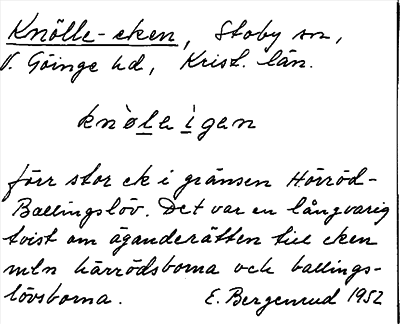 Knölle-eken, Stoby sn,
V. Göinge hd, Krist. län.
knø̀le i̱gen
förr stor ek i gränsen Hörröd-
Ballingslöv. Det var en långvarig
tvist om äganderätten till eken
mln härrödsborna och ballings-
lövsborna. E. Bergenrud 1952